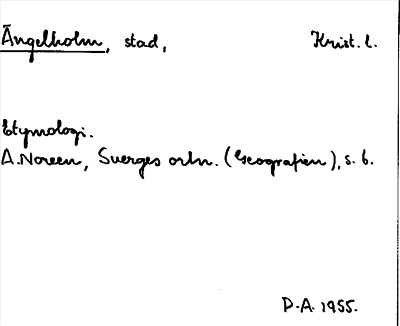 Ängelholm, stad, Krist. l.
Etymologi.
A. Noreen, Sverges ortn. (Geografien), s. 6.
D.A. 1955.